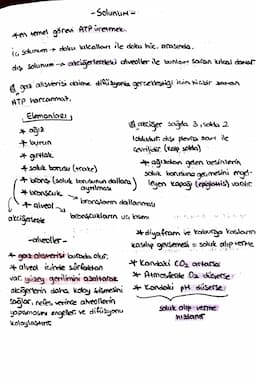 - Solunum -
* en temel görevi ATP üretmek.
iç solunum → doku kılcalları ile doku hüc. arasında.
dış solunum → akciğerlerdeki alveoller ile bunları saran kılcal damar
gaz alışverişi daima difüzyonla gerçekleştiği için hiçbir zaman
ATP harcanmaz.
Elemanları
* ağız
* burun
* gırtlak
* soluk borusu (trake)
* bronş (soluk borusunun dallara ayrılması)
* bronşçuk → bronşların dallanması
* alveol → bronşçukların uç kısmı
akciğerlerde
akciğer sağda 3, solda 2
lobludur. dışı plevra zarı ile
çevrilidir. (kalp solda)
* ağızdan gelen besinlerin
soluk borusuna geçmesini engel-
leyen kapağı (epiglottis) vardır.
- alveoller -
* gaz alışverişi burada olur.
* alveol içinde sürfaktan
var. yüzey gerilimini azaltarak
akciğerlerin daha kolay şişmesini
sağlar, nefes verince alveollerin
yapışmasını engeller ve difüzyonu
kolaylaştırır.
* diyafram ve kaburga kasların
kasılıp gevşemesi = soluk alıp verme
* Kandaki CO₂ artarsa
* Atmosferde O₂ düşerse
* Kandaki pH düşerse
soluk alıp verme
hızlanır